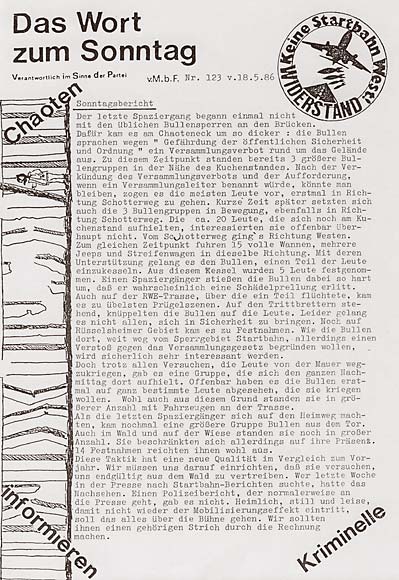 Das Wort
zum Sonntag
Verantwortlich im Sinne der Partei
v.M.b.F. Nr. 123 v.18.5.86
Keine Startbahn West!
WIDERSTAND
Chaoten
Sonntagsbericht
Der letzte Spaziergang begann einmal nicht
mit den üblichen Bullensperren an den Brücken.
Dafür kam es am Chaoteneck um so dicker : die Bullen
sprachen wegen " Gefährdung der öffentlichen Sicherheit
und Ordnung " ein Versammlungsverbot rund um das Gelände
aus. Zu diesem Zeitpunkt standen bereits 3 größere Bul-
lengruppen in der Nähe des Kuchenstandes. Nach der Ver-
kündung des Versammlungsverbots und der Aufforderung,
wenn ein Versammlungsleiter benannt würde, könnte man
bleiben, zogen es die meisten Leute vor, erstmal in Rich-
tung Schotterweg zu gehen. Kurze Zeit später setzten sich
auch die 3 Bullengruppen in Bewegung, ebenfalls in Rich-
tung Schotterweg. Die ca. 20 Leute, die sich noch am Ku-
chenstand aufhielten, interessierten sie offenbar über-
haupt nicht. Vom Schotterweg ging's Richtung Westen.
Zum gleichen Zeitpunkt fuhren 15 volle Wannen, mehrere
Jeeps und Streifenwagen in dieselbe Richtung. Mit deren
Unterstützung gelang es den Bullen, einen Teil der Leute
einzukesseln. Aus diesem Kessel wurden 5 Leute festgenom-
men. Einen Spaziergänger stießen die Bullen dabei so hart
um, daß er wahrscheinlich eine Schädelprellung erlitt.
Auch auf der RWE-Trasse, über die ein Teil flüchtete, kam
es zu übelsten Prügelszenen. Auf den Trittbrettern ste-
hend, knüppelten die Bullen auf die Leute. Leider gelang
es nicht allen, sich in Sicherheit zu bringen. Noch auf
Rüsselsheimer Gebiet kam es zu Festnahmen. Wie die Bullen
dort, weit weg vom Sperrgebiet Startbahn, allerdings einen
Verstoß gegen das Versammlungsgesetz begründen wollen,
wird sicherlich sehr interessant werden.
Doch trotz allen Versuchen, die Leute von der Mauer weg-
zukriegen, gab es eine Gruppe, die sich den ganzen Nach-
mittag dort aufhielt. Offenbar haben es die Bullen erst-
mal auf ganz bestimmte Leute abgesehen, die sie kriegen
wollen. Wohl auch aus diesem Grund standen sie in grö-
ßerer Anzahl mit Fahrzeugen an der Trasse.
Als die letzten Spaziergänger sich auf den Heimweg mach-
ten, kam nochmal eine größere Gruppe Bullen aus dem Tor.
Auch im Wald und auf der Wiese standen sie noch in großer
Anzahl. Sie beschränkten sich allerdings auf ihre Präsenz.
14 Festnahmen reichten ihnen wohl aus.
Diese Taktik hat eine neue Qualität im Vergleich zum Vor-
jahr. Wir müssen uns darauf einrichten, daß sie versuchen,
uns endgültig aus dem Wald zu vertreiben. Wer letzte Woche
in der Presse nach Startbahn-Berichten suchte, hatte das
Nachsehen. Einen Polizeibericht, der normalerweise an
die Presse geht, gab es nicht. Heimlich, still und leise,
damit nicht wieder der Mobilisierungseffekt eintritt,
soll das alles über die Bühne gehen. Wir sollten
ihnen einen gehörigen Strich durch die Rechnung
machen.
informieren
Kriminelle